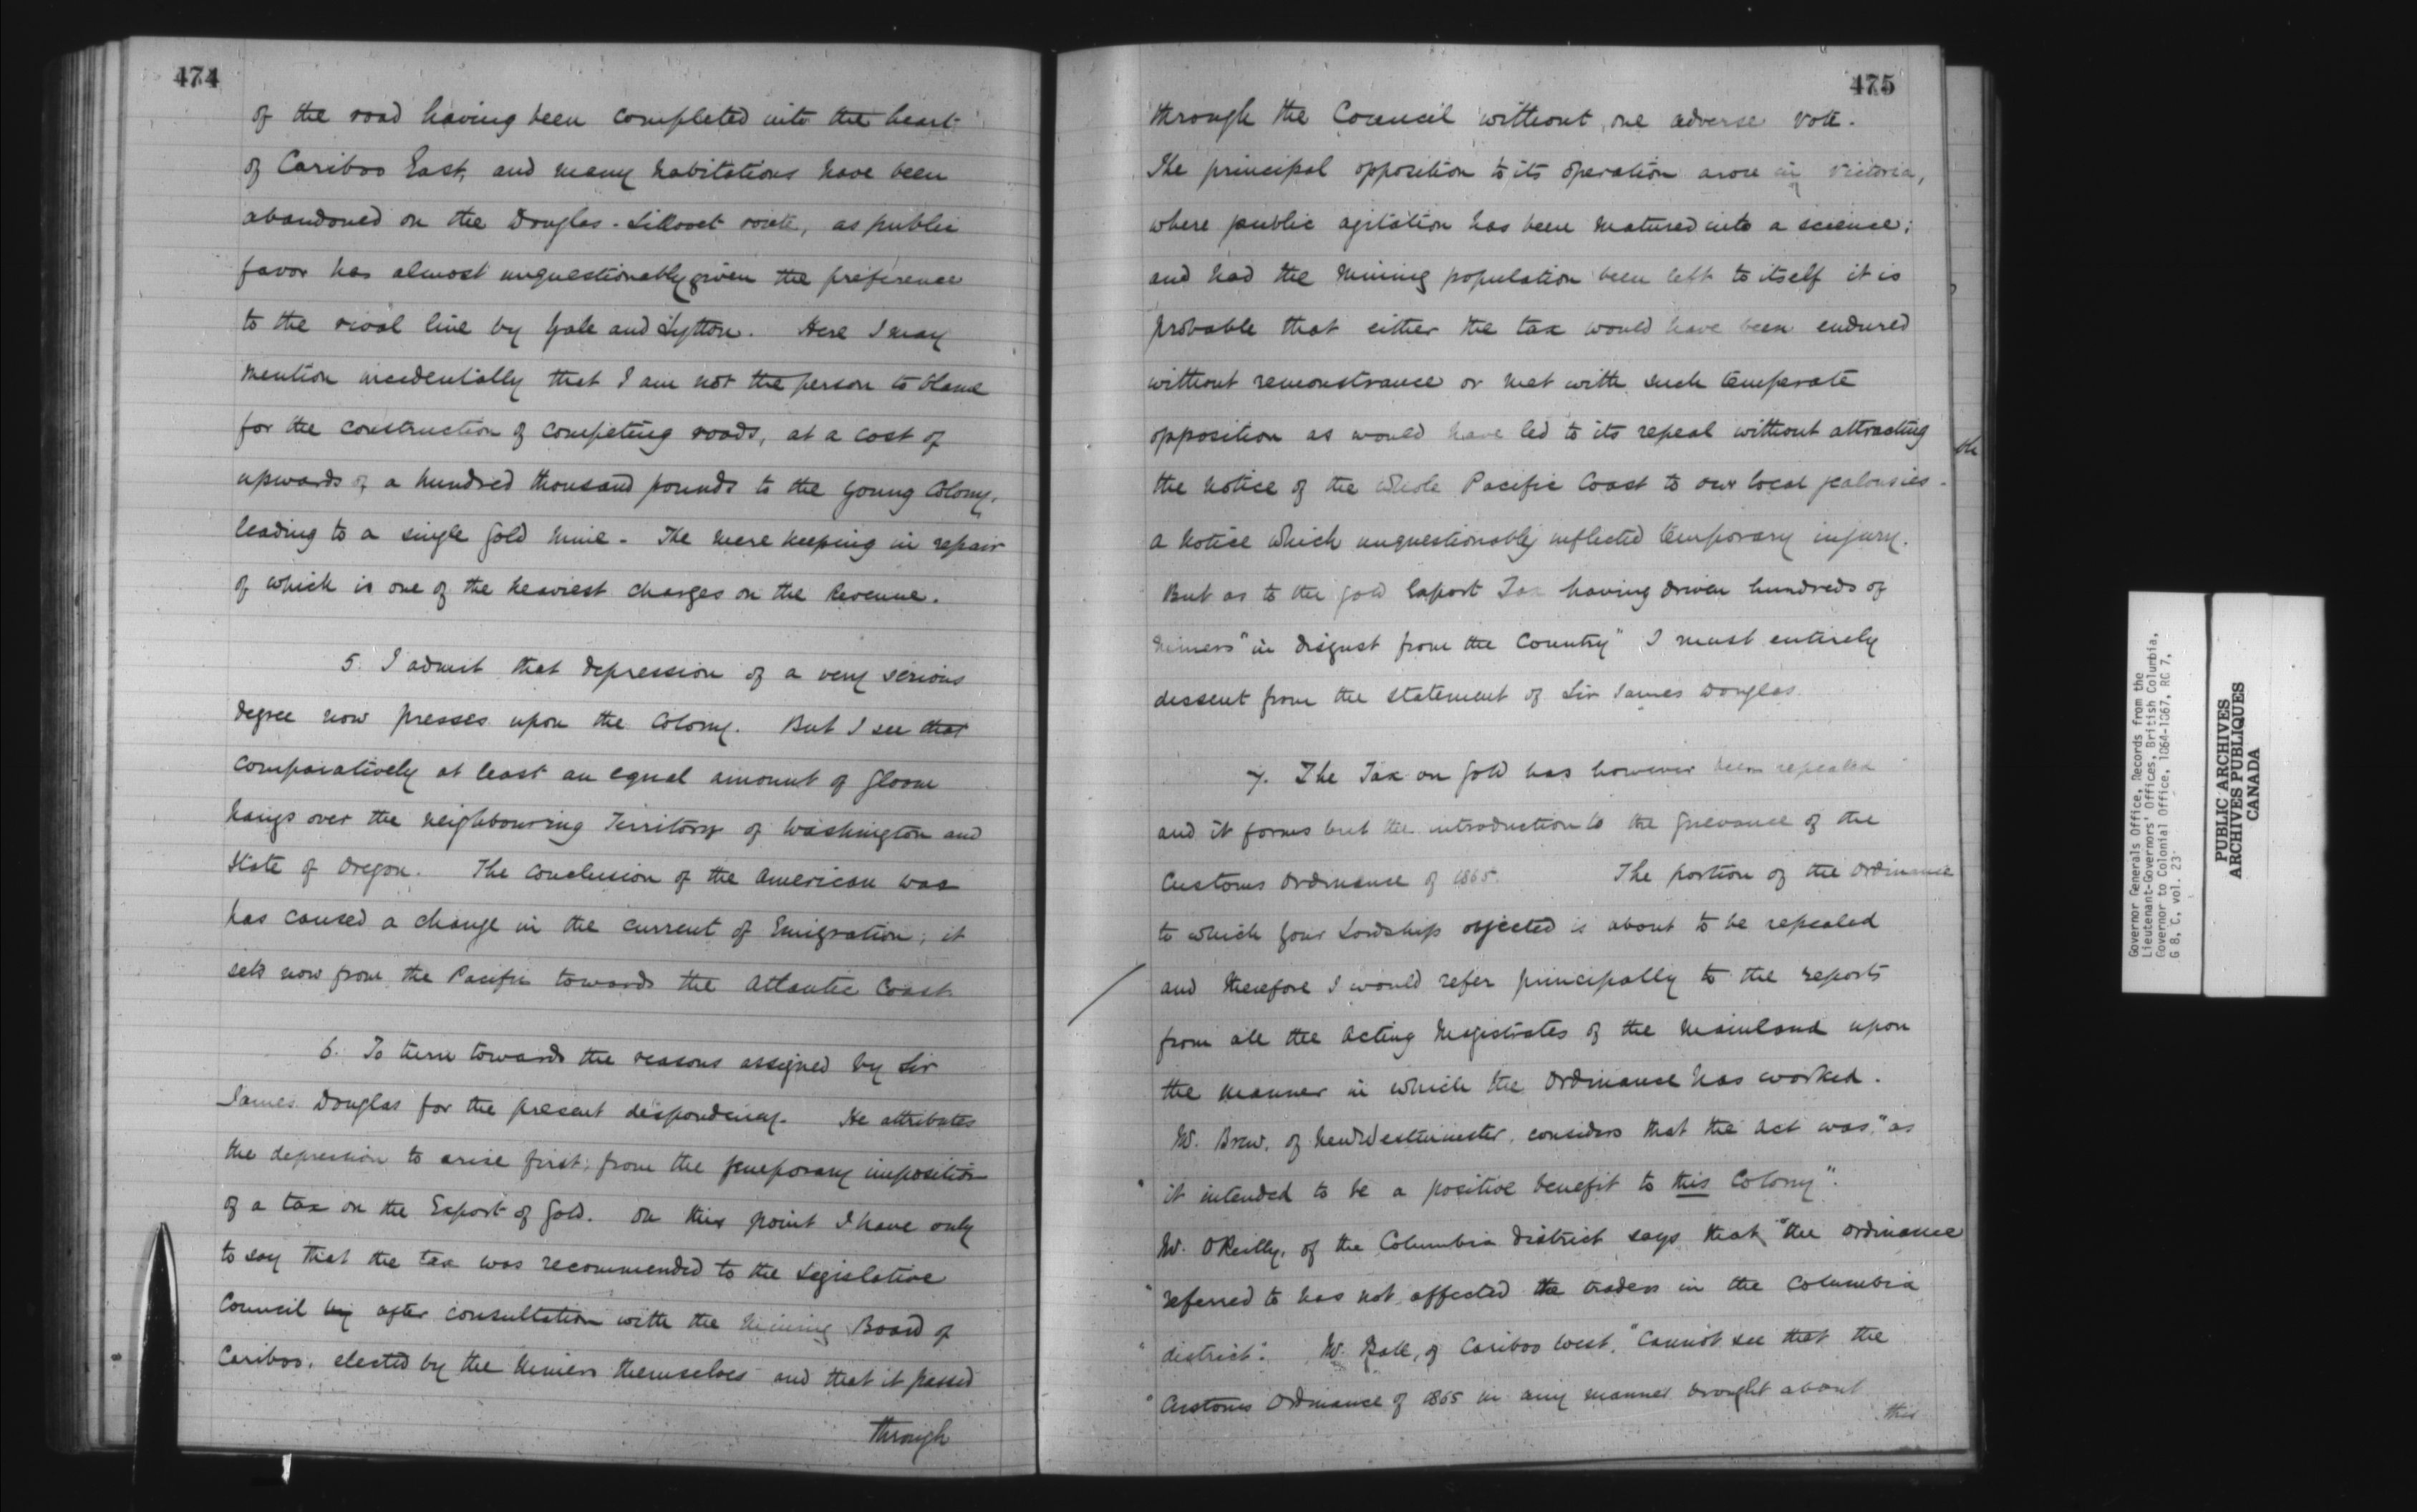 474
of the road having been completed into the heart
of Cariboo East, and many habitations have been
abandoned on the Douglas-Lillooet route, as public
favor has almost unquestionably given the preference
to the rival line by Yale and Lytton. Here I may
mention incidentally that I am not the person to blame
for the construction of competing roads, at a cost of
upwards of a hundred thousand pounds to the young Colony,
leading to a single Gold Mine - The mere keeping in repair
of which is one of the heaviest charges on the Revenue.
5. I admit that depression of a very serious
degree now presses upon the Colony. But I see that
comparatively at least an equal amount of gloom
hangs over the neighbouring Territory of Washington and
State of Oregon. The conclusion of the American war
has caused a change in the current of Emigration; it
sets now from the Pacific towards the Atlantic Coast.
6. To turn towards the reasons assigned by Sir
James Douglas for the present despondency. He attributes
the depression to arise first, from the temporary imposition
of a tax on the Export of Gold. On this point I have only
to say that the tax was recommended to the Legislative
Council by after consultation with the Mining Board of
Cariboo, elected by the Miners themselves and that it passed
through
475
through the Council without one adverse vote.
The principal opposition to its operation arose in Victoria,
where public agitation has been matured into a science;
and had the Mining population been left to itself it is
probable that either the tax would have been endured
without remonstrance or met with such temperate
opposition as would have led to its repeal without attracting
the notice of the whole Pacific Coast to our local jealousies -
a notice which unquestionably inflicted temporary injury.
But as to the Gold Export Tax having driven hundreds of
Miners "in disgust from the Country" I must entirely
dissent from the statement of Sir James Douglas.
7. The Tax on Gold has however been repealed
and it forms but the introduction to the grievance of the
Customs Ordinance of 1865. The portion of the Ordinance
to which Your Lordship objected is about to be repealed
and therefore I would refer principally to the reports
from all the Acting Magistrates of the Mainland upon
the manner in which the Ordinance has worked.
Mr. Brew, of New Westminster, considers that the Act was, "as
" it intended to be a positive benefit to this Colony".
Mr. O'Reilly, of the Columbia District says that "the Ordinance
" referred to has not affected the traders in the Columbia
" district". Mr. Ball, of Cariboo West, "cannot see that the
" Customs Ordinance of 1865 in any manner brought about
this
Governor Generals Office, Records from the
Lieutenant-Governors' Offices, British Columbia,
Governor to Colonial Office, 1864-1867, RG 7,
G 8, C, vol. 23
PUBLIC ARCHIVES
ARCHIVES PUBLIQUES
CANADA